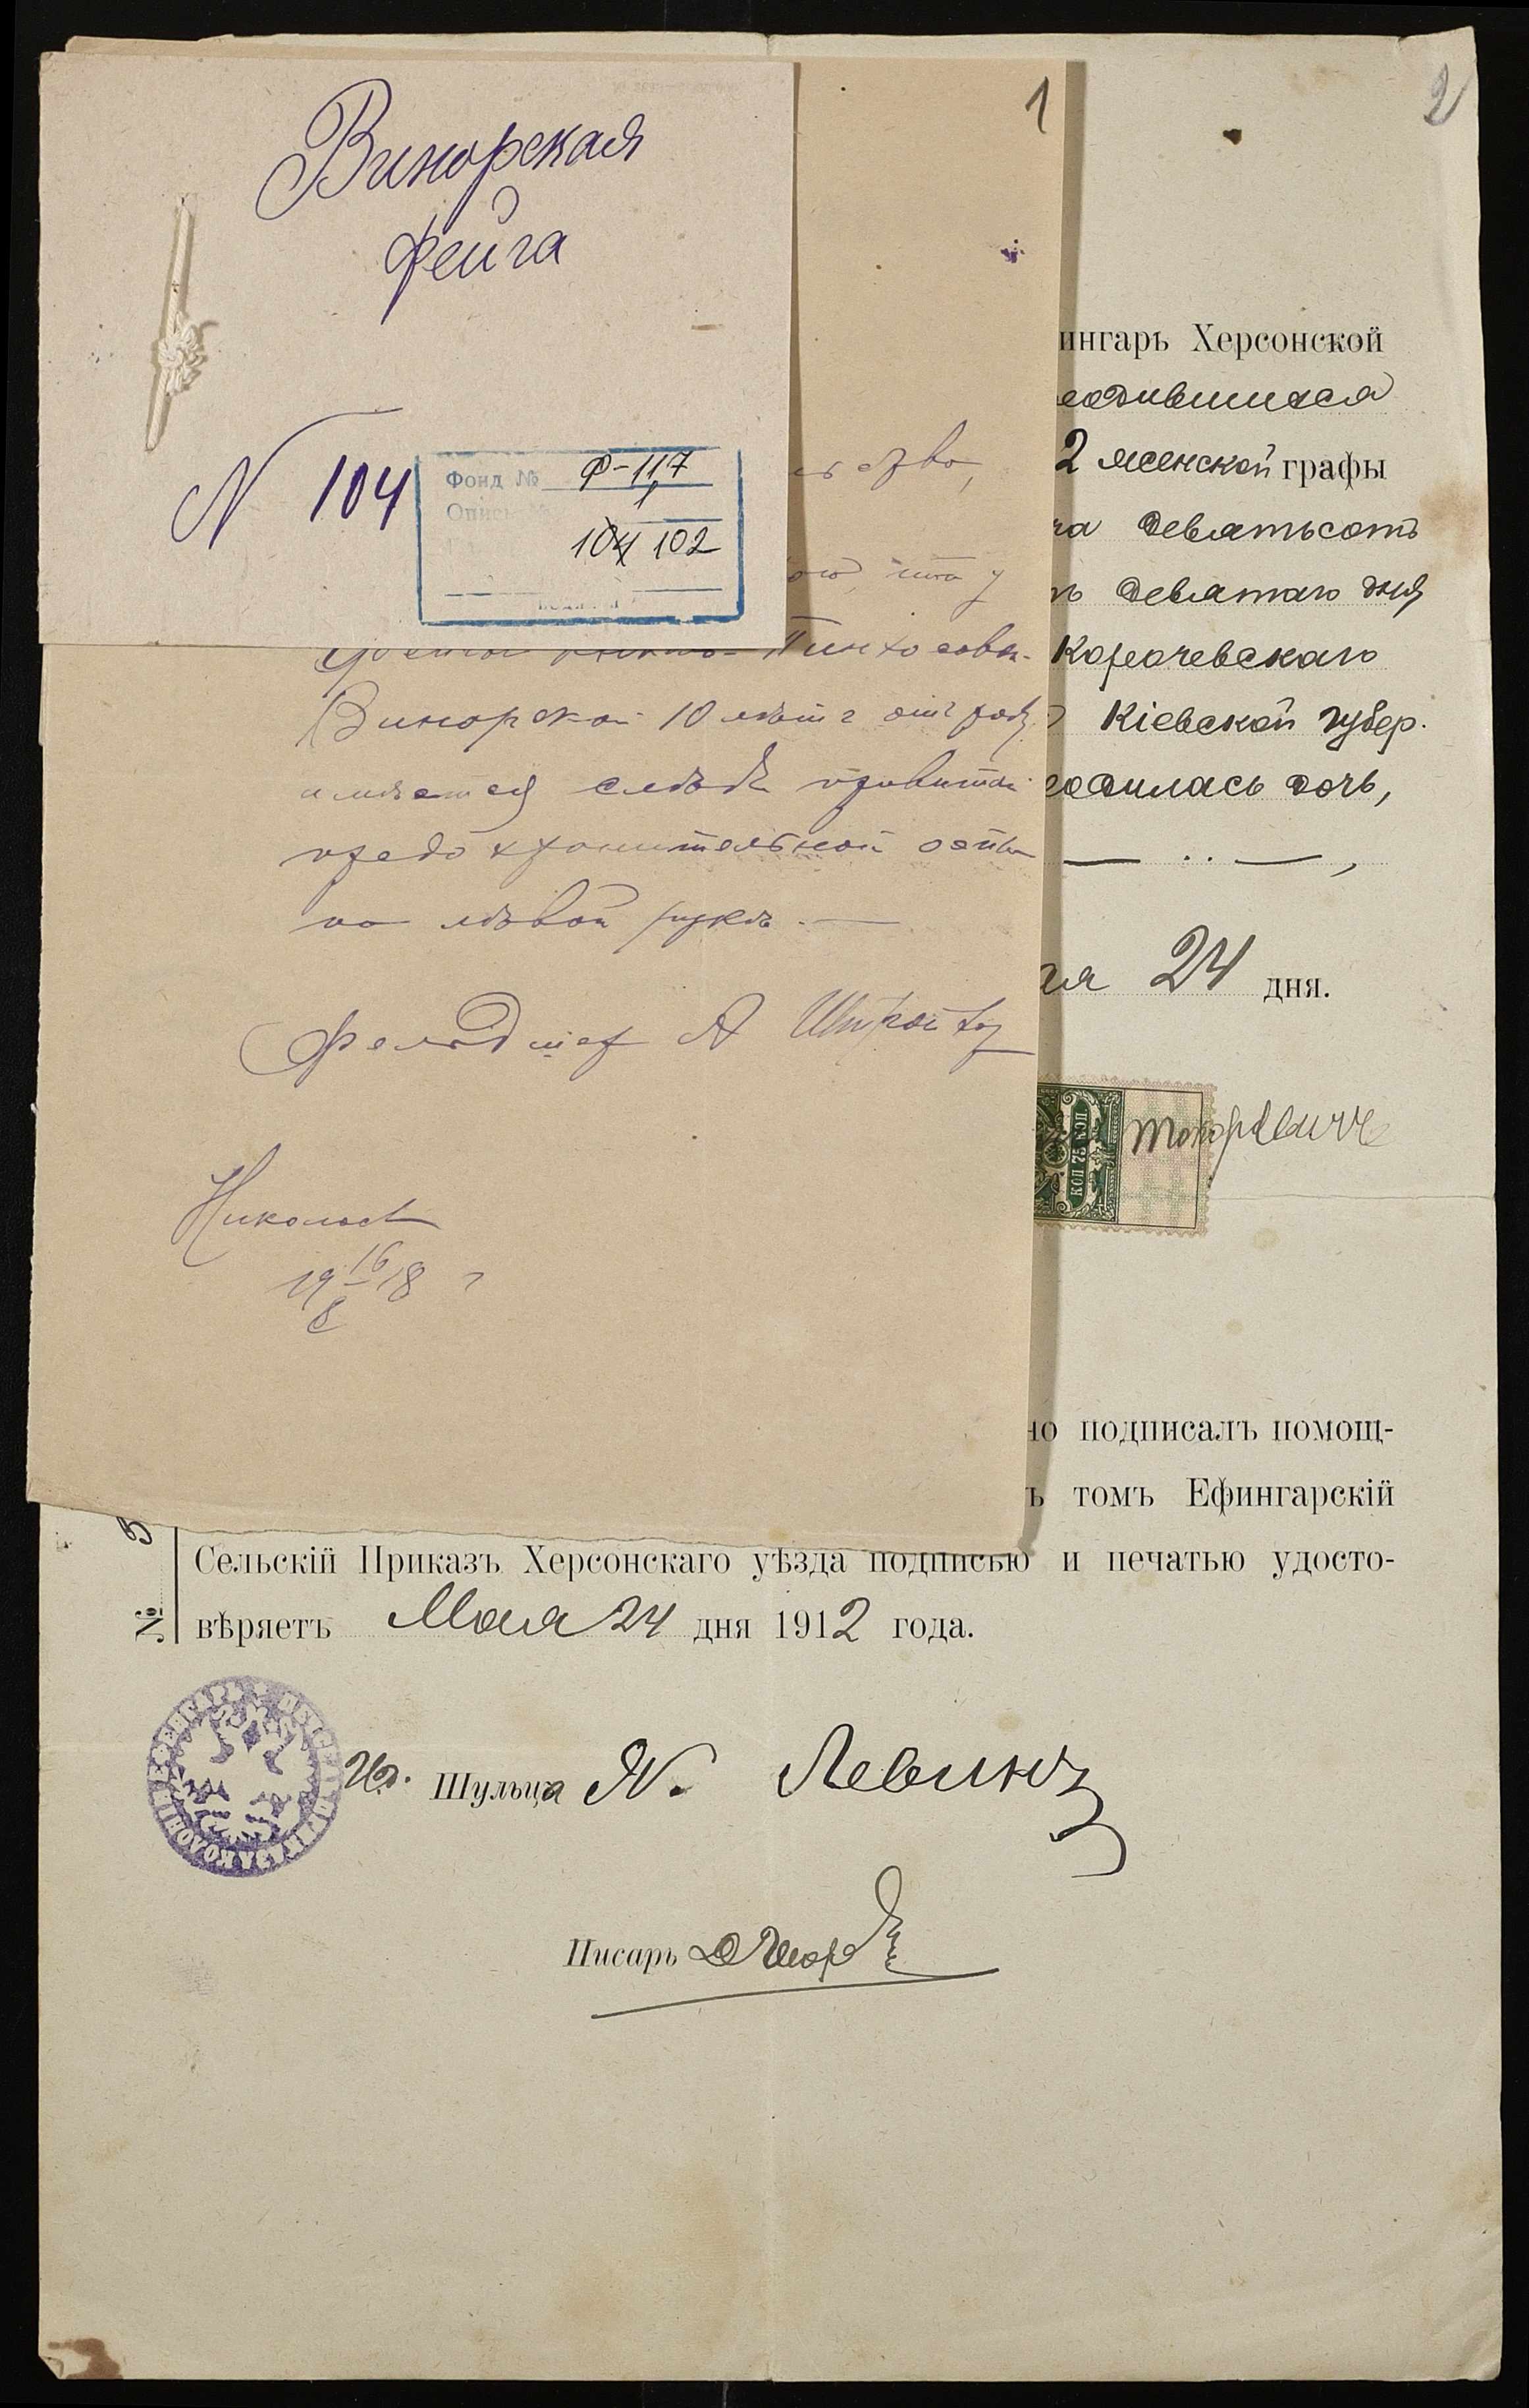 Винорская
Фейга
N 104
Фонд № Ф-117
Опись № 1
104 102
1
во,
что у
Пинхосовн.
Винорской 10 летъ отъ роду
имеется следы привитой
предохранительной оспы
на лѣвой рукѣ. —
Фельдшер А
Николаев
19 16/8 18 г
2
ингаръ Херсонской
родившихся
2 женской графы
ча девятьсотъ
девятаго дня
Корсочевскаго
Кіевской губер.
родилась дочь,
— .. — ,
ая 24 дня.
КОП 75 КОП
но подписалъ помощ-
ъ томъ Ефингарскій
№ 5
Сельскій Приказъ Херсонскаго уѣзда подписью и печатью удосто-
вѣряетъ Мая 24 дня 1912 года.
Шульца Я. Левинъ
Писарь